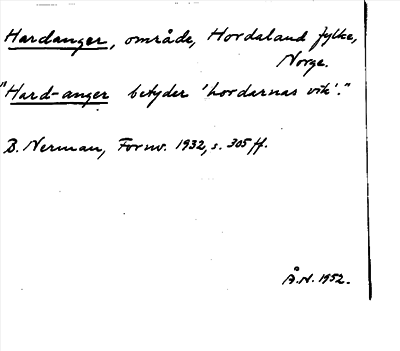 Hardanger, område, Hordaland fylke,
Norge.
"Hard-anger betyder 'hordarnas vik'."
B. Nerman, Fornv. 1932, s. 305 ff.
Å.N. 1952.